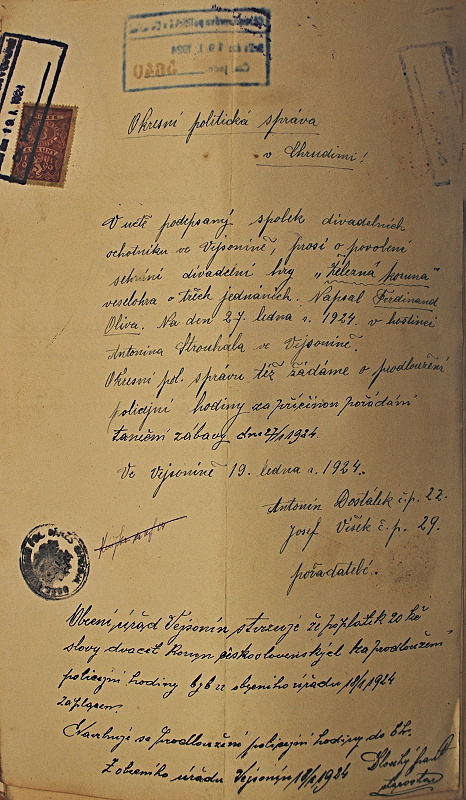 5640
19.I.1924
Okresní politická správa
v Chrudimi!
V uctě podepsaný spolek divadelních
ochotníku ve Vejsoníně, prosí o povolení
sehrání divadelní hry „Železná koruna“
veselohra o třech jednáních. Napsal Ferdinand
Oliva. Na den 27. ledna r. 1924. v hostinci
Antonína Strouhala ve Vejsoníně.
Okresní pol. správu též žádáme o prodloužení
policejní hodiny za příčinou pořádání
taneční zábavy dne 27/I 1924.
Ve Vejsoníně 19. ledna r. 1924.
Antonín Dostálek č.p. 22.
Josef Víšek č.p. 29.
pořadatelé.
Obecní úřad Vejsonín stvrzuje že poplatek 20 Kč
slovy dvacet korun československých za prodloužení
policejní hodiny byl ze obecního úřadu 18/I 1924
zaplacen.
Navrhuje se prodloužení policejní hodiny do
Z obecního úřadu Vejsonín 18/I 1924 Dlouhý
starosta